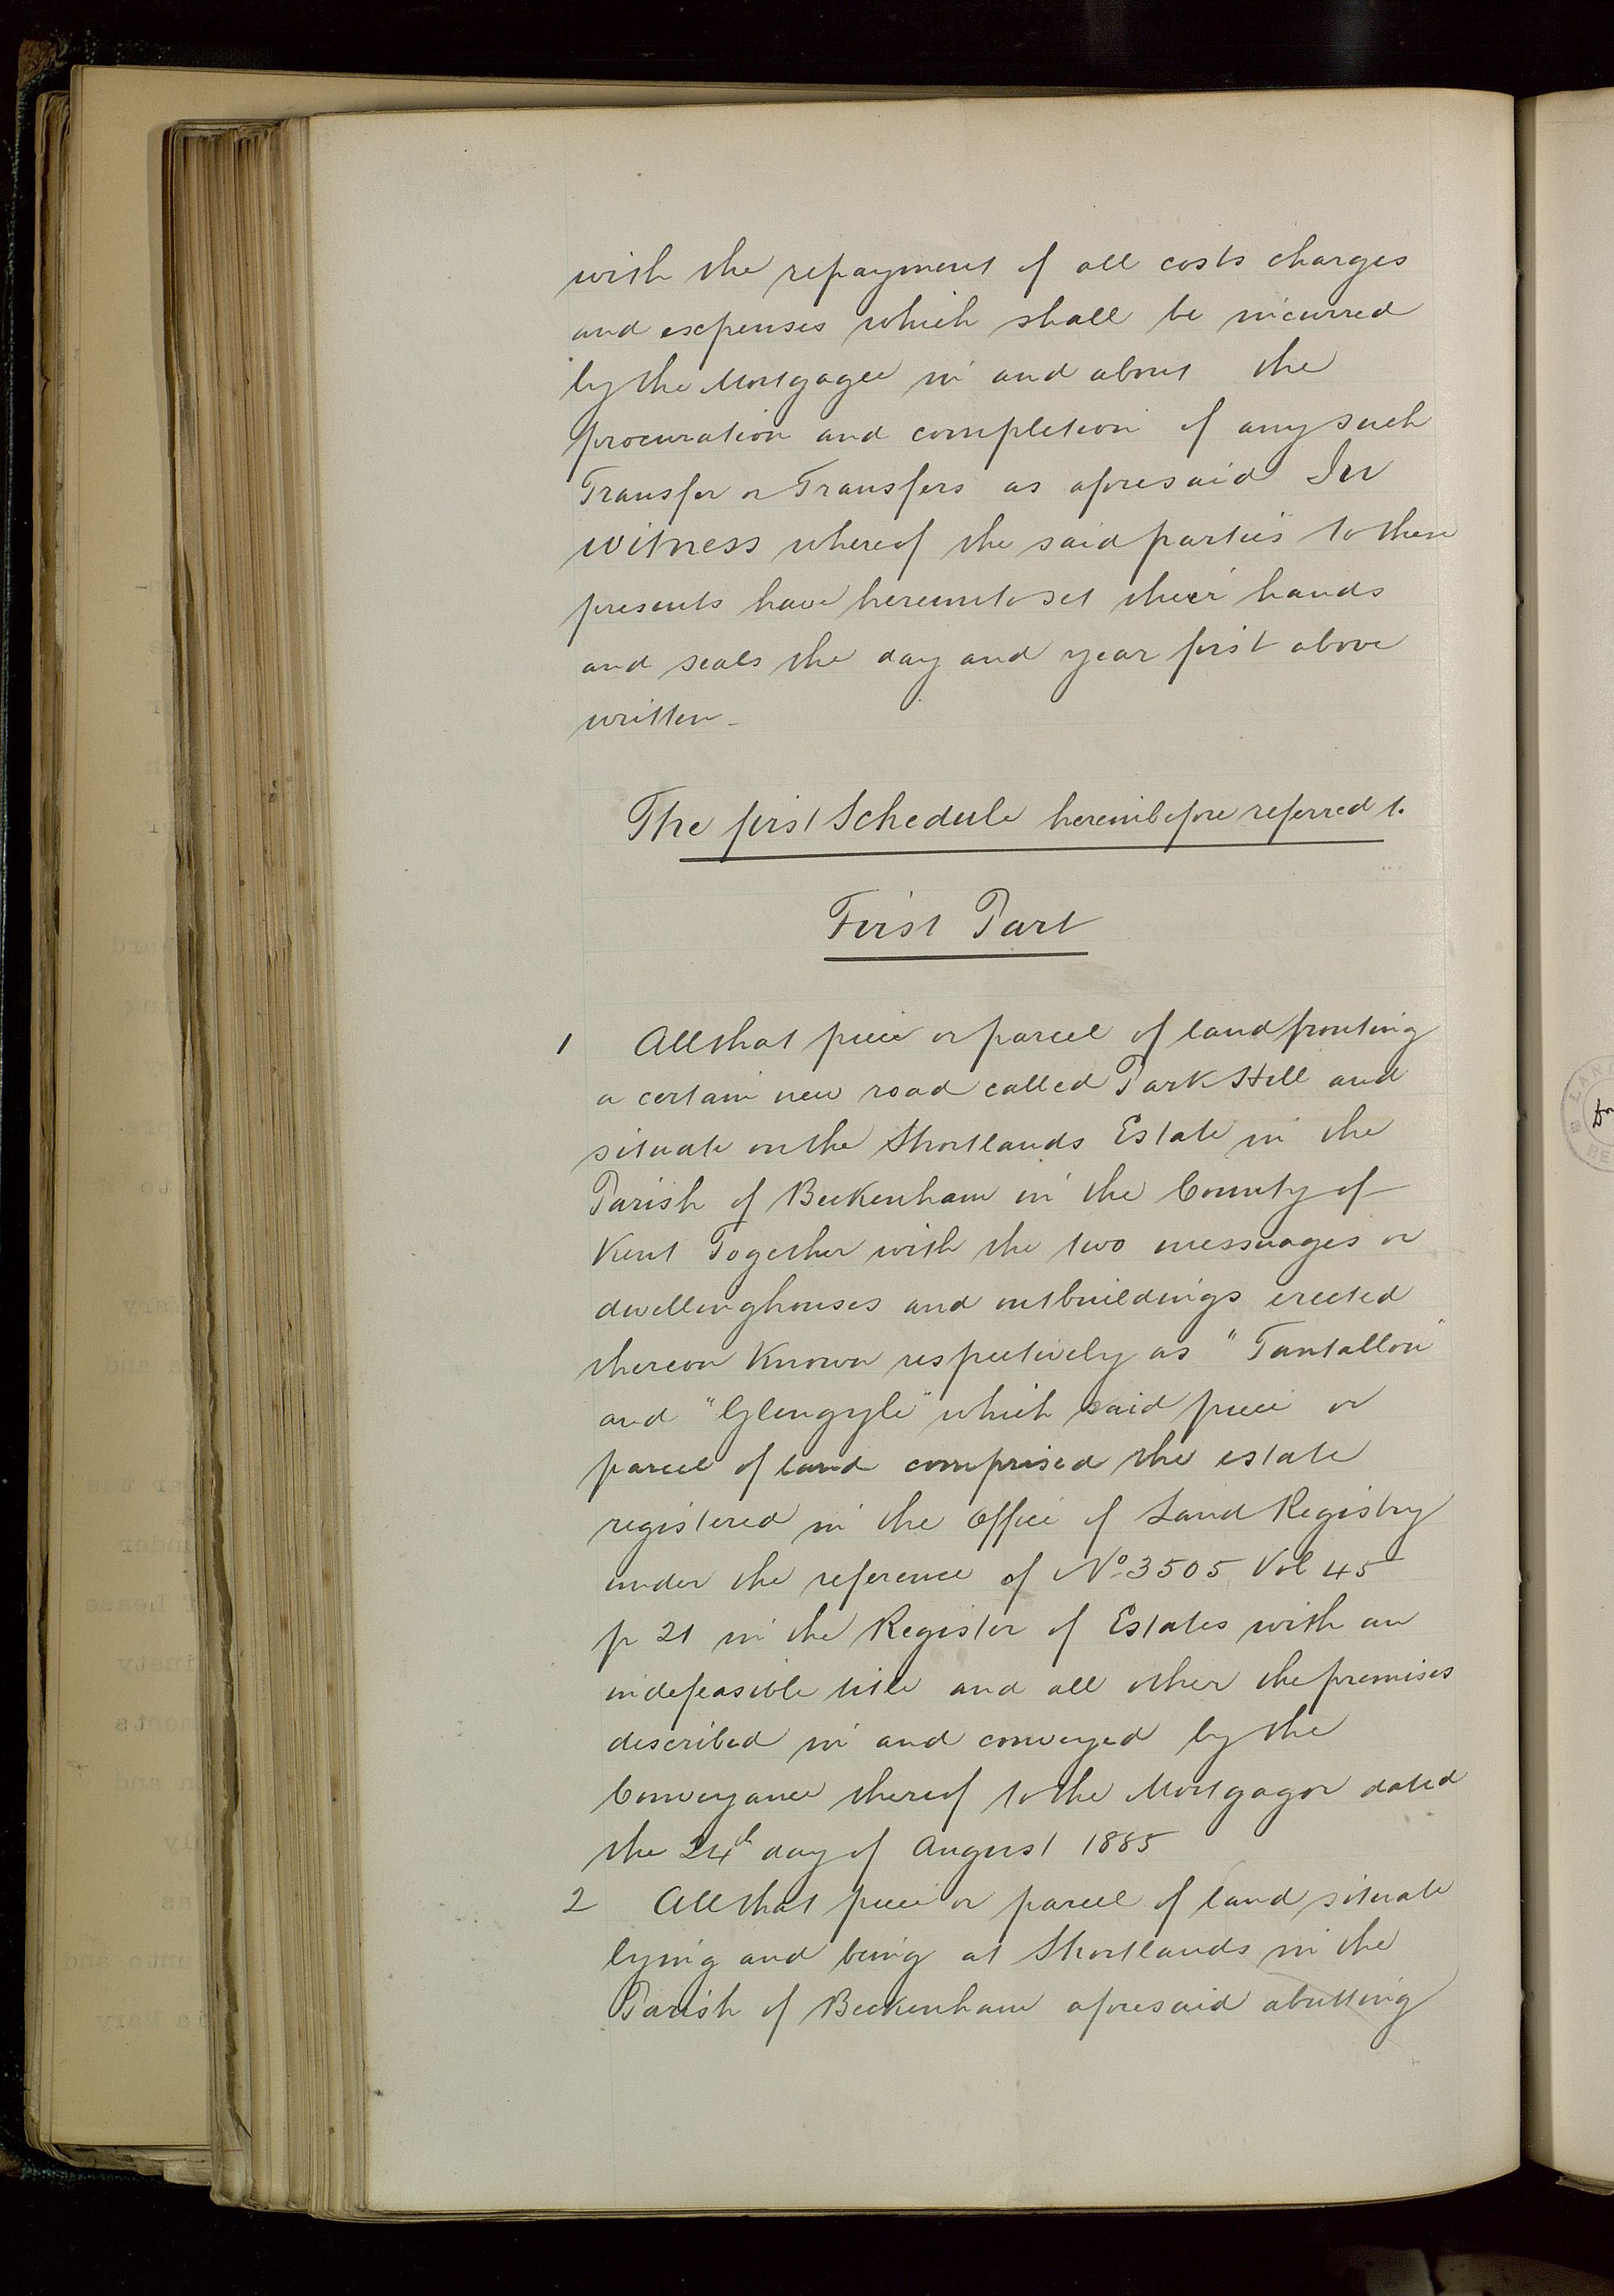 with the repayment of all costs charges
and expenses which shall be incurred
by the Mortgagee in and about the
procuration and completion of any such
Transfer or Transfers as aforesaid In
witness whereof the said parties to these
presents have hereunto set their hands
and seals the day and year first above
written -
The first Schedule hereinbefore referred to
First Part
1 All that piece or parcel of land fronting
a certain new road called Park Hill and
situate on the Shortlands Estate in the
Parish of Beckenham in the County of
Kent Together with the two messuages or
dwellinghouses and outbuildings erected
thereon known respectively as "Tantallon"
and "Glengyle" which said piece or
parcel of land comprised the estate
registered in the Office of Land Registry
under the reference of No 3505 Vol 45
p 21 in the Register of Estates with an
indefeasible title and all other the premises
described in and conveyed by the
Conveyance thereof to the Mortgagor dated
the 24th day of August 1885
2 All that piece or parcel of land situate
lying and being at Shortlands in the
Parish of Beckenham aforesaid abutting